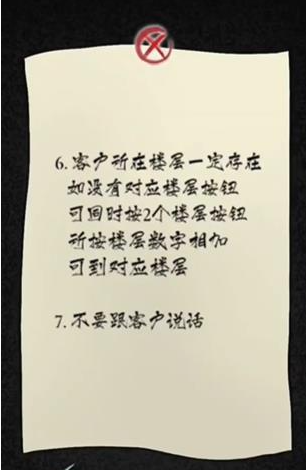 6.客户所在楼层一定存在
如没有对应楼层按钮
可同时按2个楼层按钮
所按楼层数字相加
可到对应楼层
7.不要跟客户说话